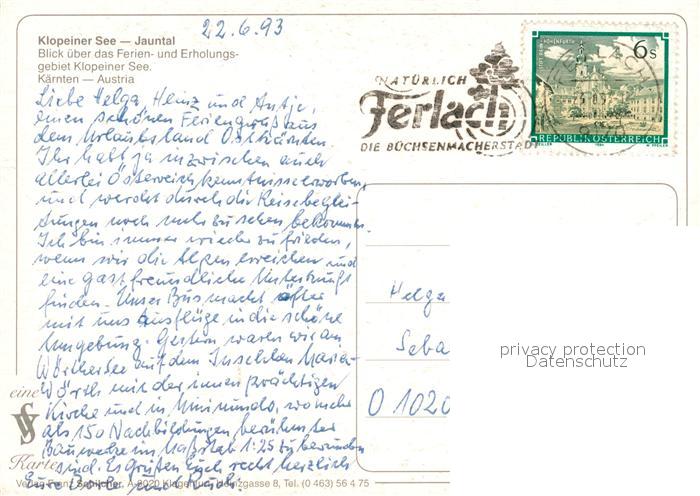 22.6.93
Klopeiner See — Jauntal
Blick über das Ferien- und Erholungs-
gebiet Klopeiner See.
Kärnten — Austria
Liebe Helga, Heinz und Antje,
einen schönen Feriengruß aus
dem Urlaubsland Ostkärnten.
Ihr habt ja inzwischen auch
allerlei Österreichkenntnisse erworben
und werdet durch die Reisebeglei-
tungen noch mehr zu sehen bekommen.
Ich bin immer wieder zufrieden,
wenn wir die Alpen erreichen und
eine gastfreundliche Unterkunft
finden. Unser Bus macht öfter
mit uns Ausflüge in die schöne
Umgebung. Gestern waren wir am
Wörthersee auf dem Inselchen Maria-
Wörth mit der prächtigen
Kirche und in Minimundo, wo mehr
als 150 Nachbildungen berühmter
Bauwerke im Maßstab 1:25 zu bewundern
sind. Es grüßen Euch recht herzlich
Eure und
NATÜRLICH
Ferlach
DIE BÜCHSENMACHERSTADT
FERLACH
STIFT REIN-HOHENFURTH
6 S
REPUBLIK ÖSTERREICH
1984
Helga
Seba
O 1020
privacy protection
Datenschutz
eine
Karte
Verlag Franz Schilcher, A-9020 Klagenfurt, gasse 8, Tel. (0 463) 56 4 75